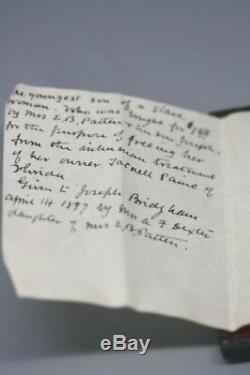 he youngest son of a slave
woman. Who was bought for $
by Mrs E.B. Patten & son Joseph
for the purpose of freeing her
from the inhuman treatment
of her owner, Tarnell Paine of
Florida
Given to Joseph Bridgham
april 14 1897 by Mrs A F Dexter
daughter of Mrs E.B. Patten.
ebay